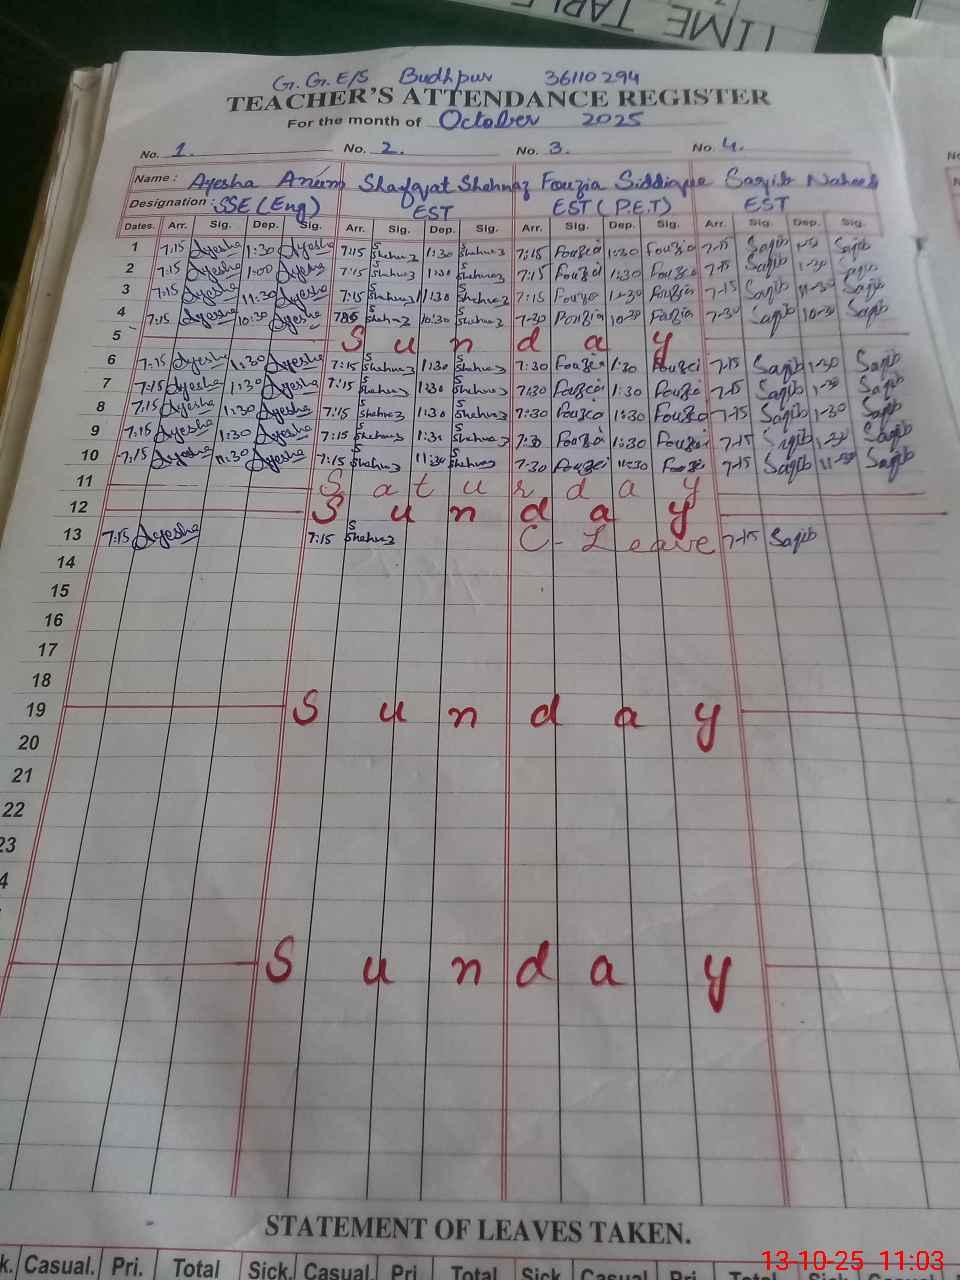 TIME TABLE
G. G. E/S Budhpur 36110294
TEACHER'S ATTENDANCE REGISTER
For the month of October 2025
No. 1. No. 2. No. 3. No. 4.
Name: Ayesha Anum Shafqat Shehnaz Fouzia Siddique Saqib Naheed
Designation: SSE (Eng) EST EST (P.E.T) EST
Dates. Arr. Sig. Dep. Sig. Arr. Sig. Dep. Sig. Arr. Sig. Dep. Sig. Arr. Sig. Dep. Sig.
1 7:15 Ayesha 1:30 Ayesha 7:15 S Shehnaz 1:30 S Shehnaz 7:15 Fouzia 1:30 Fouzia 7-15 Saqib Saqib
2 7:15 Ayesha 1:00 Ayesha 7:15 S Shehnaz S Shehnaz 7:15 Fouzia 1:30 Fouzia 7-15 Saqib 1-30 Saqib
3 7:15 Ayesha 11:30 Ayesha 7:15 S Shehnaz 11:30 S Shehnaz 7:15 Fouzia 11-30 Fouzia 7-15 Saqib 11-30 Saqib
4 7:15 Ayesha 10:30 Ayesha S Shehnaz 10:30 S Shehnaz 7-30 Fouzia 10-30 Fouzia 7-30 Saqib 10-30 Saqib
5 Sunday
6 7:15 Ayesha 1:30 Ayesha 7:15 S Shehnaz 1:30 S Shehnaz 7:30 Fouzia 1:30 Fouzia 7-15 Saqib 1-30 Saqib
7 7:15 Ayesha 1:30 Ayesha 7:15 S Shehnaz 1:30 S Shehnaz 7:30 Fouzia 1:30 Fouzia 7-15 Saqib 1-30 Saqib
8 7:15 Ayesha 1:30 Ayesha 7:15 S Shehnaz 1:30 S Shehnaz 7:30 Fouzia 1:30 Fouzia 7-15 Saqib 1-30 Saqib
9 7:15 Ayesha 1:30 Ayesha 7:15 S Shehnaz 1:30 S Shehnaz 7:30 Fouzia 1:30 Fouzia 7-15 Saqib 1-30 Saqib
10 7:15 Ayesha 11:30 Ayesha 7:15 S Shehnaz 11:30 S Shehnaz 7-30 Fouzia 11-30 Fouzia 7-15 Saqib 11-30 Saqib
11 Saturday
12 Sunday
13 7:15 Ayesha 7:15 S Shehnaz C-Leave 7-15 Saqib
14
15
16
17
18
19 Sunday
20
21
22
23
4
Sunday
STATEMENT OF LEAVES TAKEN.
k. Casual. Pri. Total Sick. Casual. Pri Total Sick Casual. Pri. Total
13-10-25 11:03